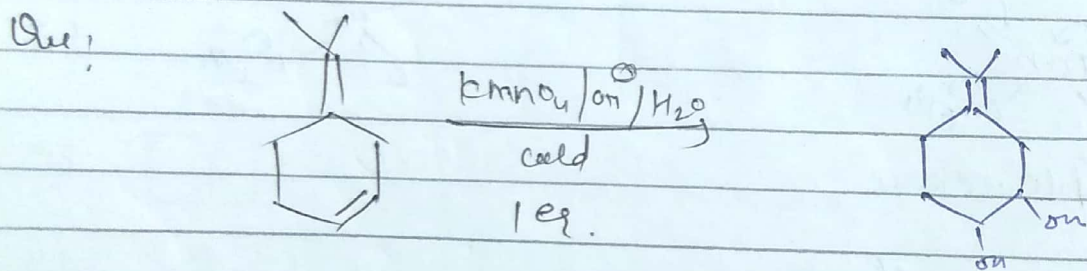 Que:
KMnO4/OH⊖/H2O
cold
1 eq.
OH
OH